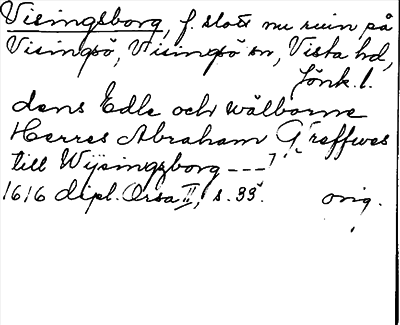 Visingsborg, f. slott nu ruin på
Visingsö, Visingsö sn, Vista hd,
Jönk. l.
dens Edle och wälborne
Herres Abraham Greffwes
till Wijsingzborg ---
1616 dipl. Orsa II, s. 33. orig.